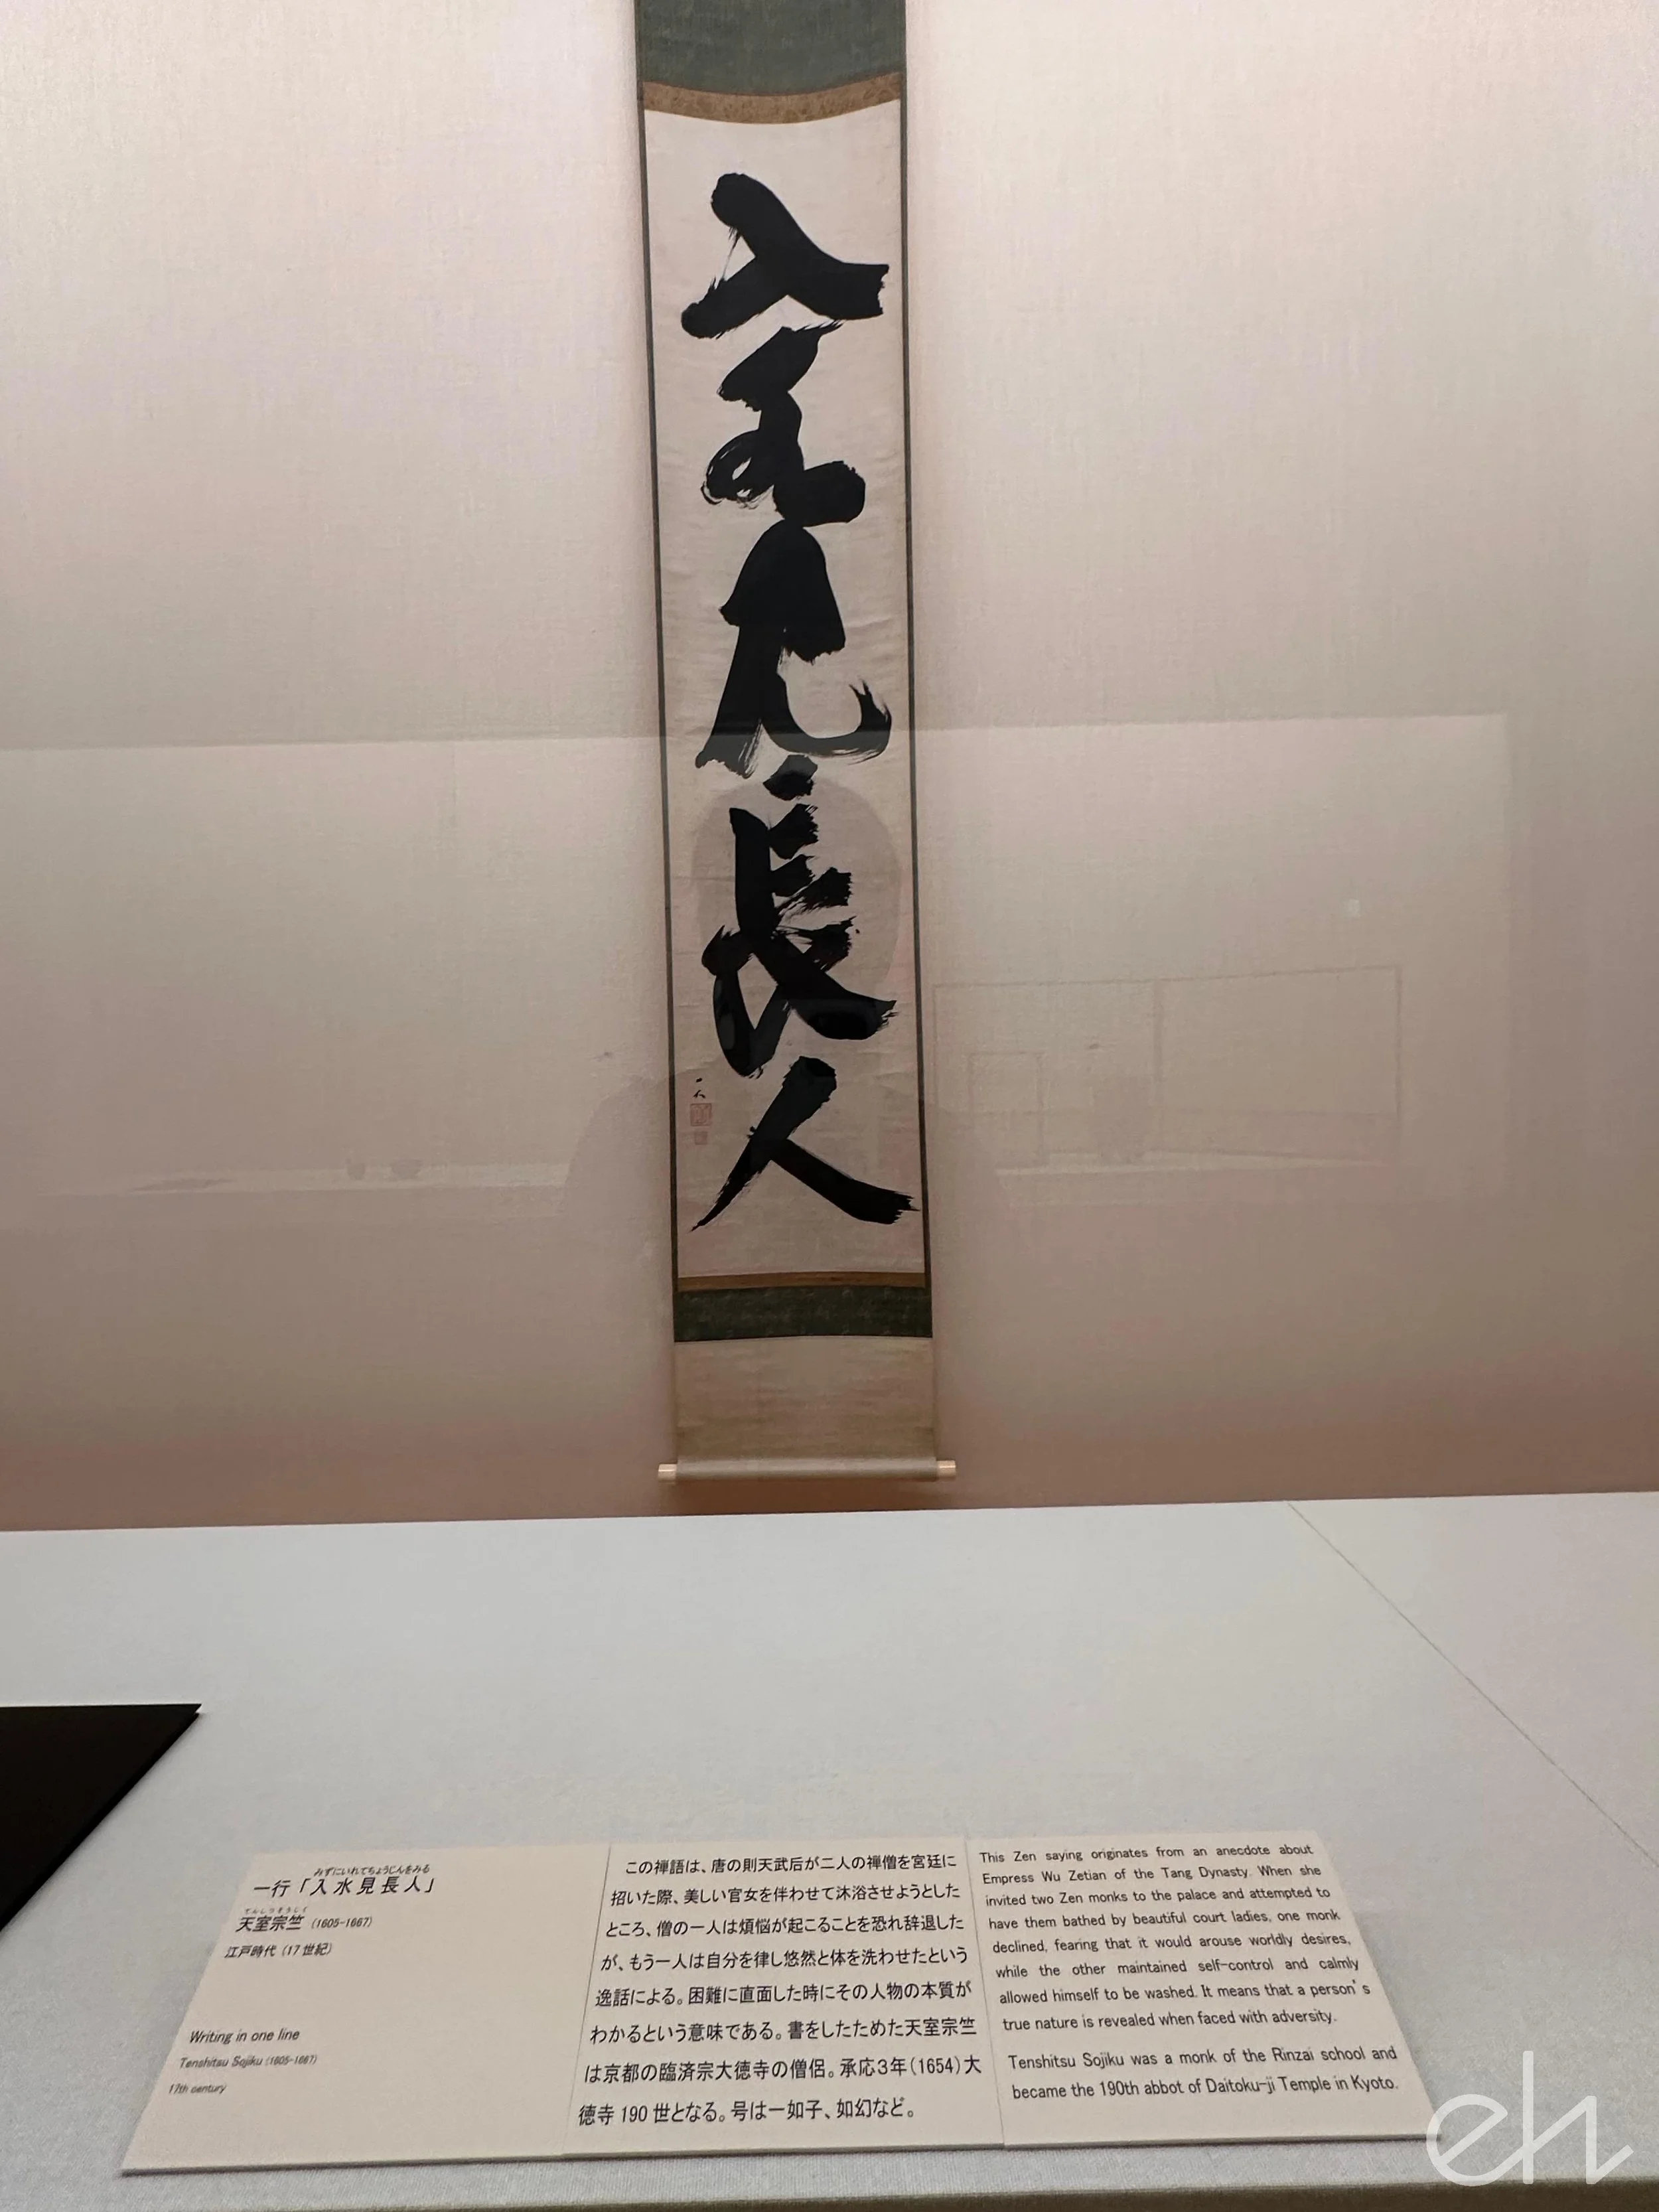 入水見長人
一人
みずにいれてちょうじんをみる
一行「入水見長人」
てんしつそうじく
天室宗竺 (1605-1667)
江戸時代 (17世紀)
Writing in one line
Tenshitsu Sojiku (1605-1667)
17th century
この禅語は、唐の則天武后が二人の禅僧を宮廷に
招いた際、美しい官女を伴わせて沐浴させようとした
ところ、僧の一人は煩悩が起こることを恐れ辞退した
が、もう一人は自分を律し悠然と体を洗わせたという
逸話による。困難に直面した時にその人物の本質が
わかるという意味である。書をしたためた天室宗竺
は京都の臨済宗大徳寺の僧侶。承応3年(1654)大
徳寺190世となる。号は一如子、如幻など。
This Zen saying originates from an anecdote about
Empress Wu Zetian of the Tang Dynasty. When she
invited two Zen monks to the palace and attempted to
have them bathed by beautiful court ladies, one monk
declined, fearing that it would arouse worldly desires,
while the other maintained self-control and calmly
allowed himself to be washed. It means that a person's
true nature is revealed when faced with adversity.
Tenshitsu Sojiku was a monk of the Rinzai school and
became the 190th abbot of Daitoku-ji Temple in Kyoto.
eh